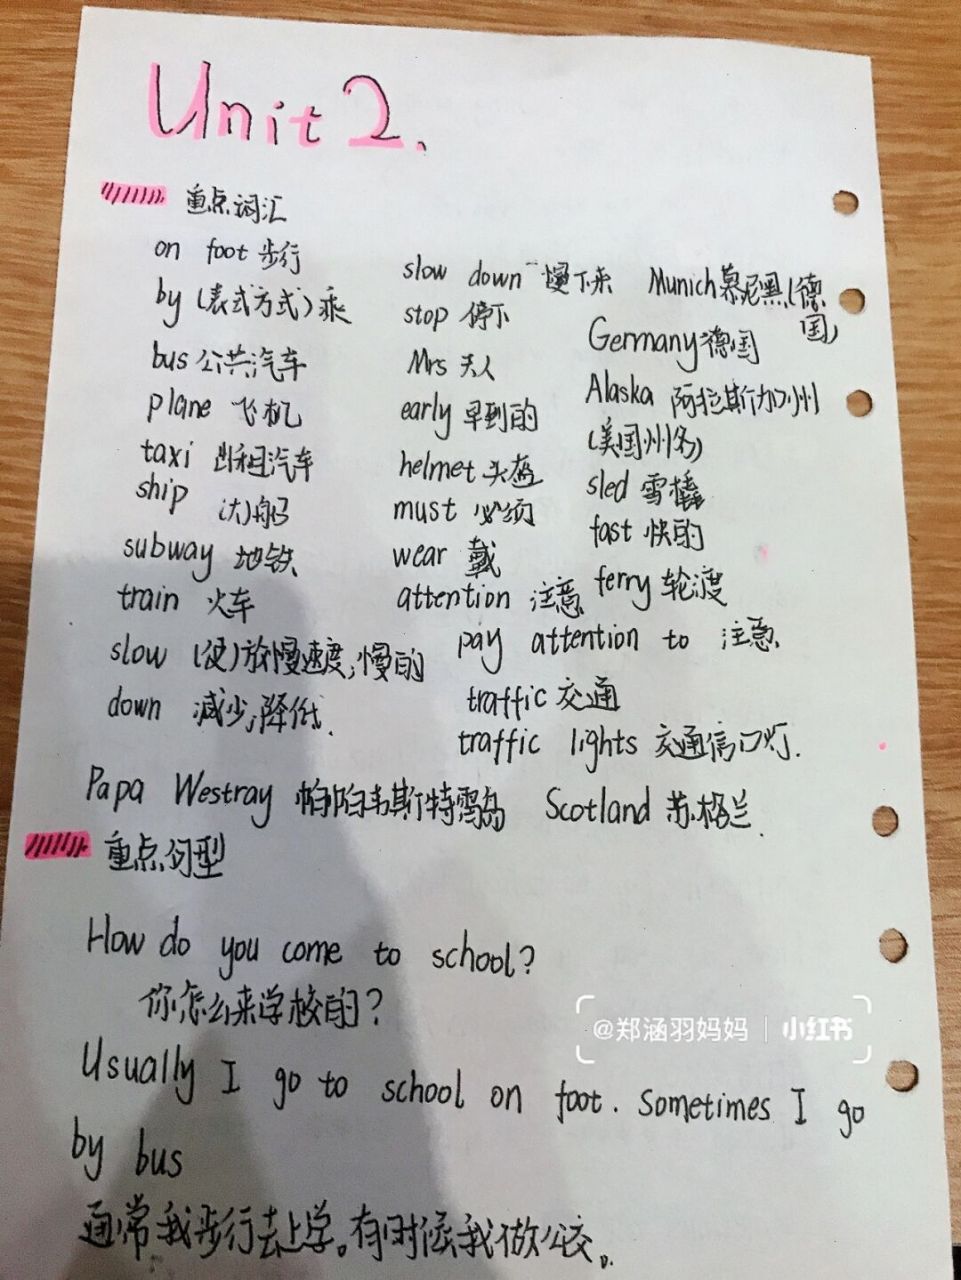 Unit 2.
重点词汇
on foot 步行
by (表式方式) 乘
bus 公共汽车
plane 飞机
taxi 出租汽车
ship (大)船
subway 地铁
train 火车
slow (使)放慢速度,慢的
down 减少,降低.
slow down 慢下来
stop 停下
Mrs 夫人
early 早到的
helmet 头盔
must 必须
wear 戴
attention 注意
pay attention to 注意.
traffic 交通
traffic lights 交通信口灯.
Munich 慕尼黑(德
国)
Germany 德国
Alaska 阿拉斯加州
(美国州名)
sled 雪橇
fast 快的
ferry 轮渡
Papa Westray 帕帕韦斯特雷岛 Scotland 苏格兰.
重点句型
How do you come to school?
你怎么来学校的?
Usually I go to school on foot. Sometimes I go
by bus
通常我步行去上学。有时候我做公交。
@郑涵羽妈妈 | 小红书